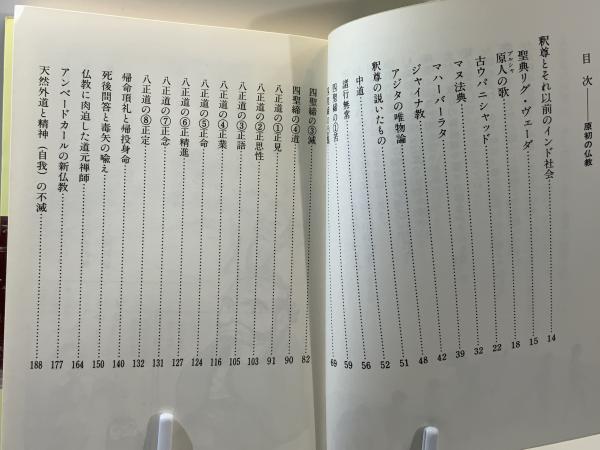 目次――原初の仏教
釈尊とそれ以前のインド社会……14
聖典リグ・ヴェーダ……15
プルシャ
原人の歌……18
古ウパニシャッド……22
マヌ法典……32
マハーバーラタ……39
ジャイナ教……42
アジタの唯物論……48
釈尊の説いたもの……51
中道……52
諸行無常……56
四聖諦の①苦……59
69
四聖諦の③滅……82
四聖諦の④道……90
八正道の①正見……91
八正道の②正思性……103
八正道の③正語……105
八正道の④正業……116
八正道の⑤正命……124
八正道の⑥正精進……127
八正道の⑦正念……131
八正道の⑧正定……132
帰命頂礼と帰投身命……140
死後問答と毒矢の喩え……150
仏教に肉迫した道元禅師……164
アンベードカールの新仏教……177
天然外道と精神（自我）の不滅……188